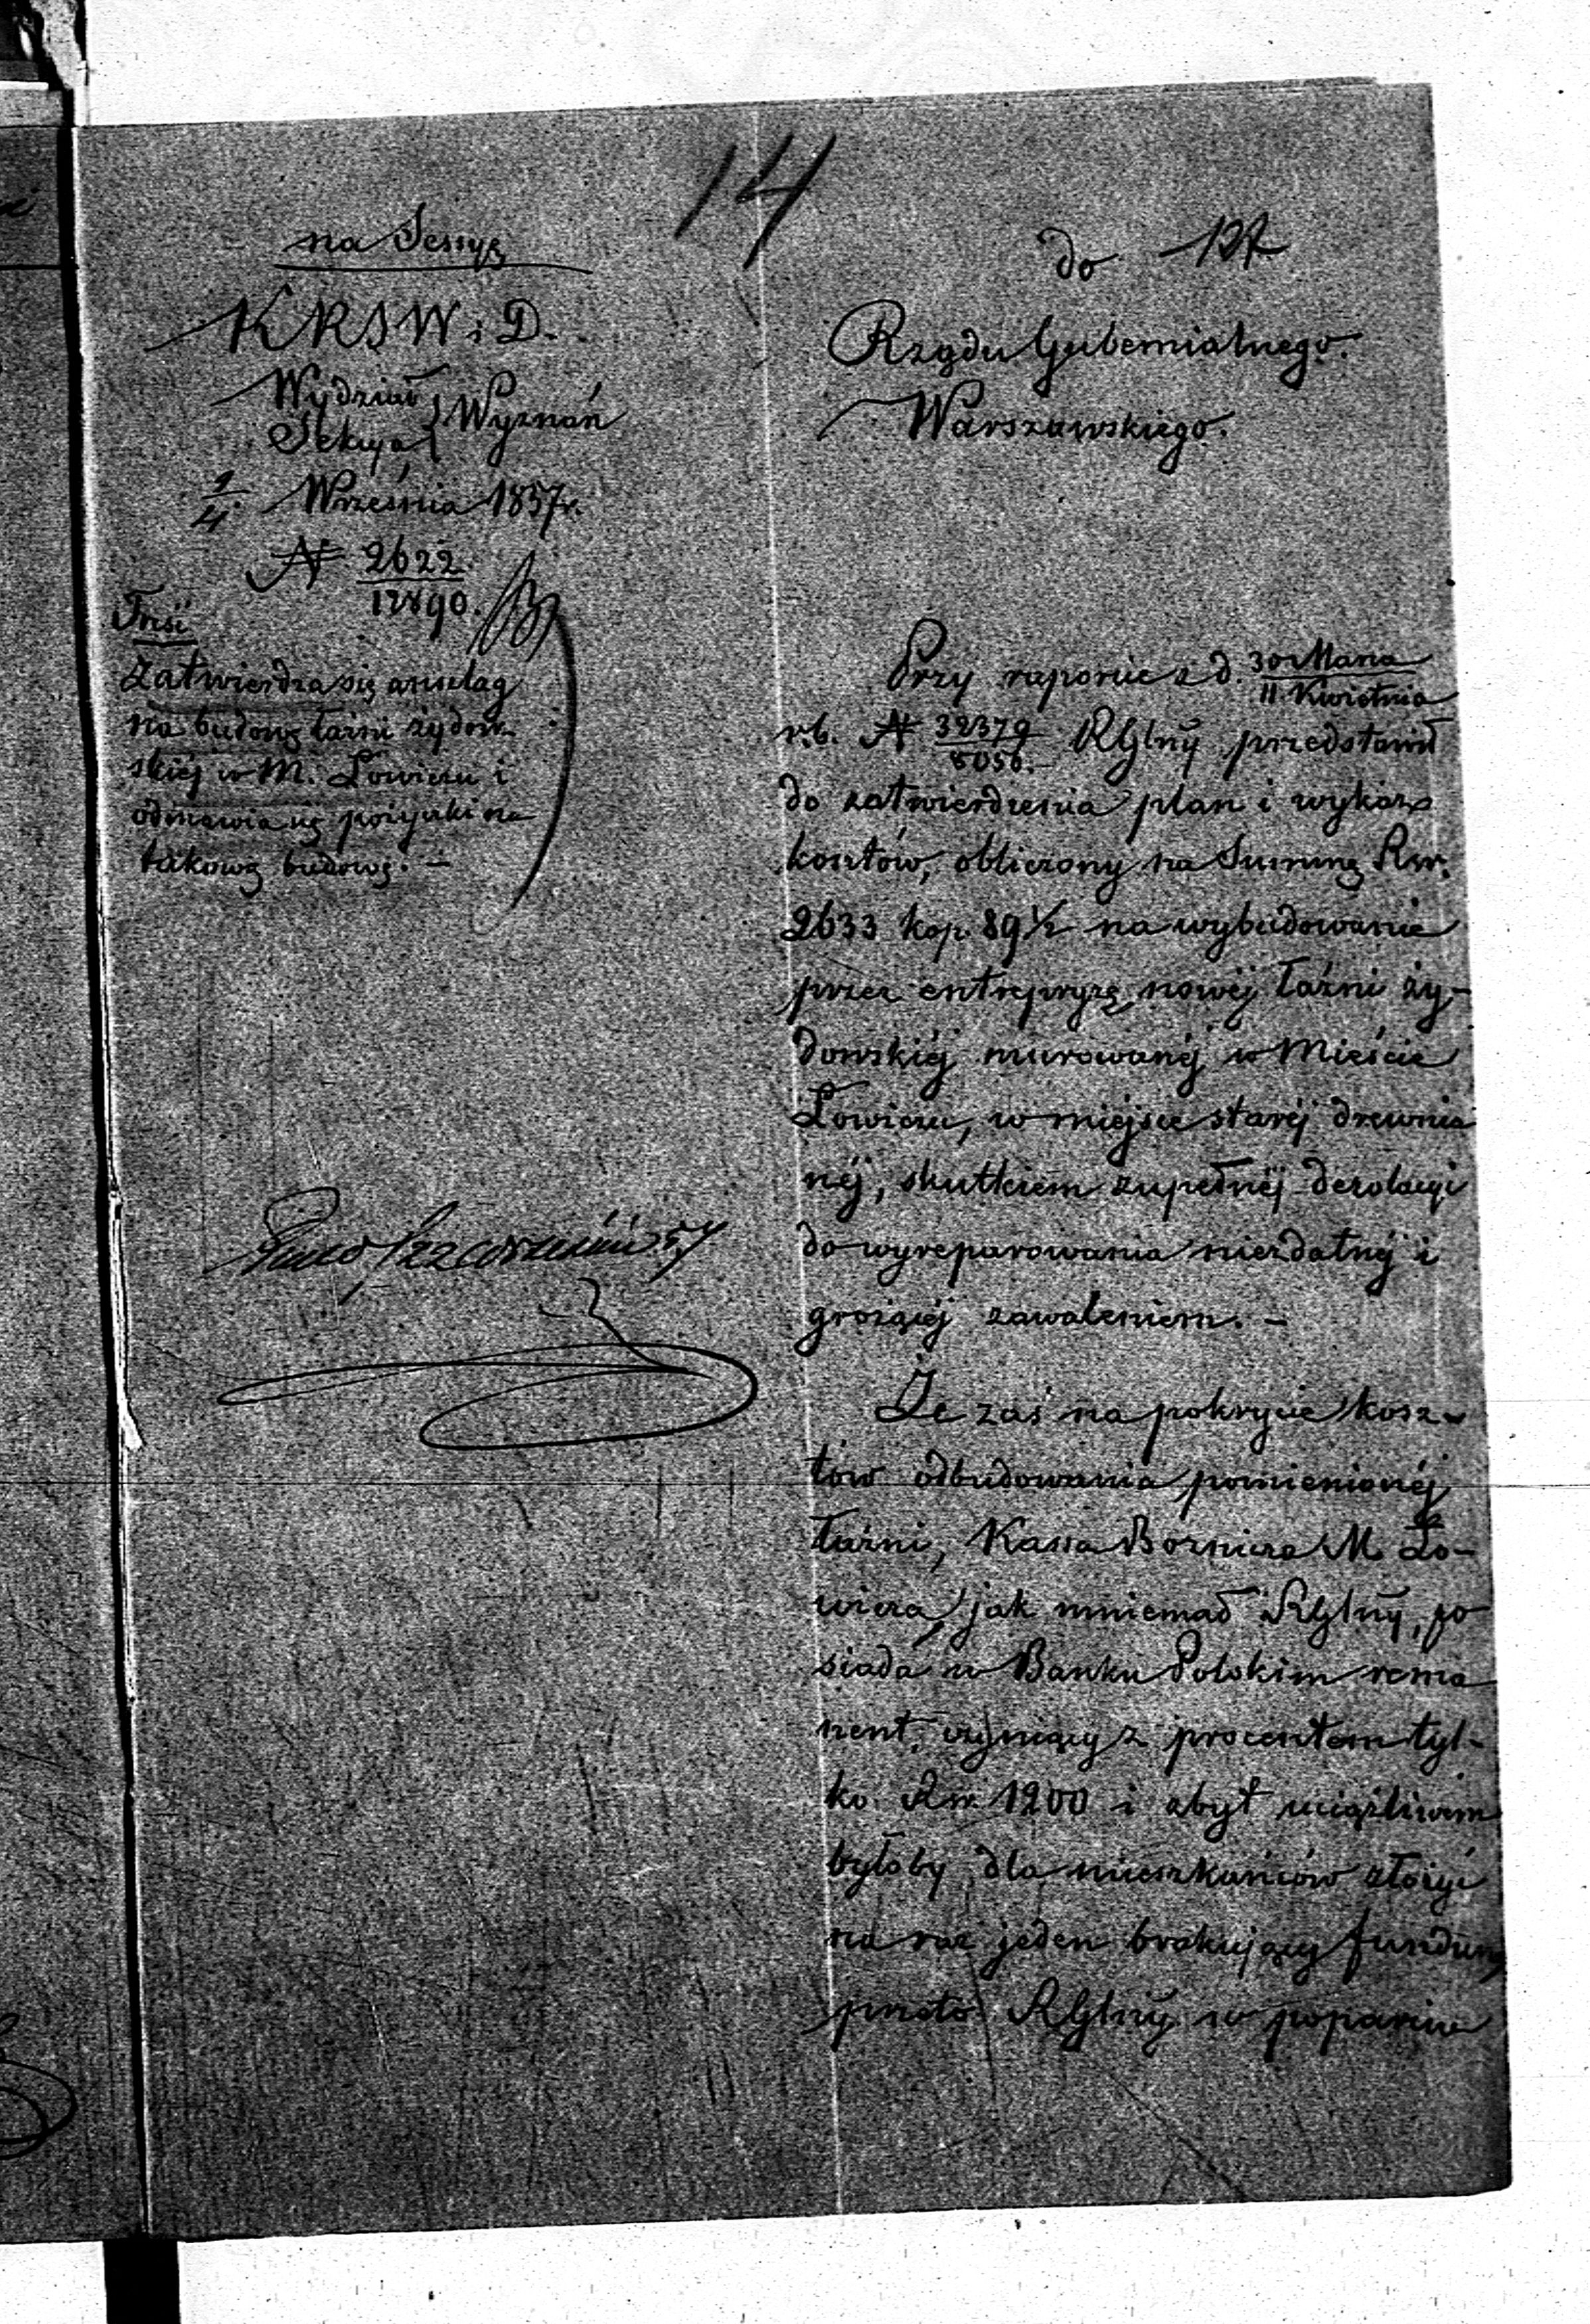 14
na Sessyę
KRSW i D.
Wydział
Sekcya } Wyznań
2/4 Września 1857 r.
N 2622
12890.
Treść
Zatwierdza się anszlag
na budowę łaźni żydow-
skiéj w M. Łowiczu i
odmawia się pożyczki na
takową budowę. –
do 127
Rządu Gubernialnego.
Warszawskiego.
Przy raporcie z d. 30 Marca
11 Kwietnia
r.b. N 32379
5056. RGlny przedstawił
do zatwierdzenia plan i wykaz
kosztów, obliczony na Summę Rsr.
2633 kop. 89 1/2 na wybudowanie
przez entrepryzę nowéj łaźni ży-
dowskiéj murowanéj w Mieście
Łowiczu, w miejsce staréj drewnia
néj, skutkiem zupełnéj dezolacyi
do wyreparowania niezdatnéj i
grożącéj zawaleniem. –
Że zaś na pokrycie kosz-
tów odbudowania pomienionéj
łaźni, Kassa Boznicza M. Ło-
wicza, jak mniemał RGlny, po
siada w Banku Polskim rema
nent, czyniący z procentem tyl-
ko Rsr. 1200 i zbyt uciążliwém
byłoby dla mieszkańców złożyć
na raz jeden brakujący fundusz
przeto RGlny w poparciu